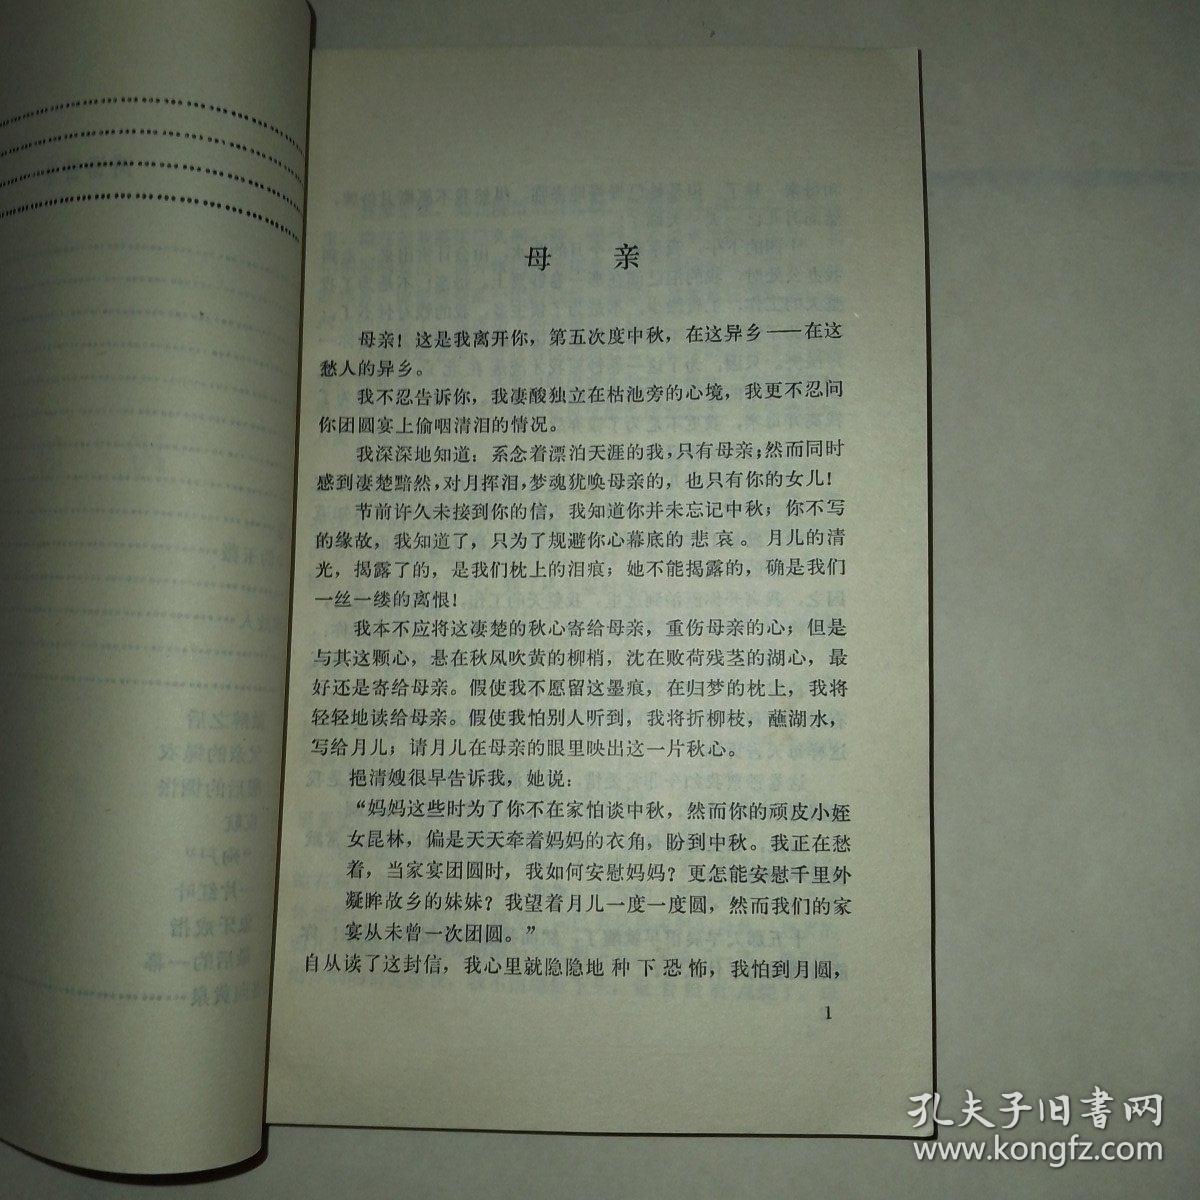 母 亲
母亲！这是我离开你，第五次度中秋，在这异乡——在这
愁人的异乡。
我不忍告诉你，我凄酸独立在枯池旁的心境，我更不忍问
你团圆宴上偷咽清泪的情况。
我深深地知道：系念着漂泊天涯的我，只有母亲；然而同时
感到凄楚黯然，对月挥泪，梦魂犹唤母亲的，也只有你的女儿！
节前许久未接到你的信，我知道你并未忘记中秋；你不写
的缘故，我知道了，只为了规避你心幕底的悲哀。月儿的清
光，揭露了的，是我们枕上的泪痕；她不能揭露的，确是我们
一丝一缕的离恨！
我本不应将这凄楚的秋心寄给母亲，重伤母亲的心；但是
与其这颗心，悬在秋风吹黄的柳梢，沈在败荷残茎的湖心，最
好还是寄给母亲。假使我不愿留这墨痕，在归梦的枕上，我将
轻轻地读给母亲。假使我怕别人听到，我将折柳枝，蘸湖水，
写给月儿；请月儿在母亲的眼里映出这一片秋心。
挹清嫂很早告诉我，她说：
“妈妈这些时为了你不在家怕谈中秋，然而你的顽皮小姪
女昆林，偏是天天牵着妈妈的衣角，盼到中秋。我正在愁
着，当家宴团圆时，我如何安慰妈妈？更怎能安慰千里外
凝眸故乡的妹妹？我望着月儿一度一度圆，然而我们的家
宴从未曾一次团圆。”
自从读了这封信，我心里就隐隐地种下恐怖，我怕到月圆，
1
孔夫子旧书网
www.kongfz.com